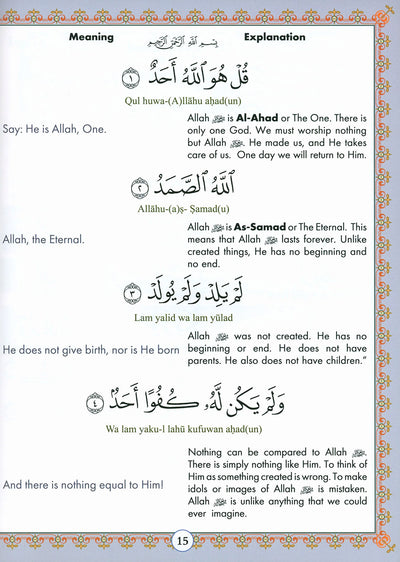 Meaning
بِسْمِ اللَّهِ الرَّحْمَٰنِ الرَّحِيمِ
Explanation
قُلْ هُوَ ٱللَّهُ أَحَدٌ ١
Qul huwa-(A)llāhu aḥad(un)
Say: He is Allah, One.
Allah ﷻ is Al-Ahad or The One. There is
only one God. We must worship nothing
but Allah ﷻ. He made us, and He takes
care of us. One day we will return to Him.
ٱللَّهُ ٱلصَّمَدُ ٢
Allāhu-(a)ṣ- Ṣamad(u)
Allah, the Eternal.
Allah ﷻ is As-Samad or The Eternal. This
means that Allah ﷻ lasts forever. Unlike
created things, He has no beginning and
no end.
لَمْ يَلِدْ وَلَمْ يُولَدْ ٣
Lam yalid wa lam yūlad
He does not give birth, nor is He born
Allah ﷻ was not created. He has no
beginning or end. He does not have
parents. He also does not have children.”
وَلَمْ يَكُن لَّهُۥ كُفُوًا أَحَدٌۢ ٤
Wa lam yaku-l lahū kufuwan aḥad(un)
And there is nothing equal to Him!
Nothing can be compared to Allah ﷻ.
There is simply nothing like Him. To think of
Him as something created is wrong. To make
idols or images of Allah ﷻ is mistaken.
Allah ﷻ is unlike anything that we could
ever imagine.
15